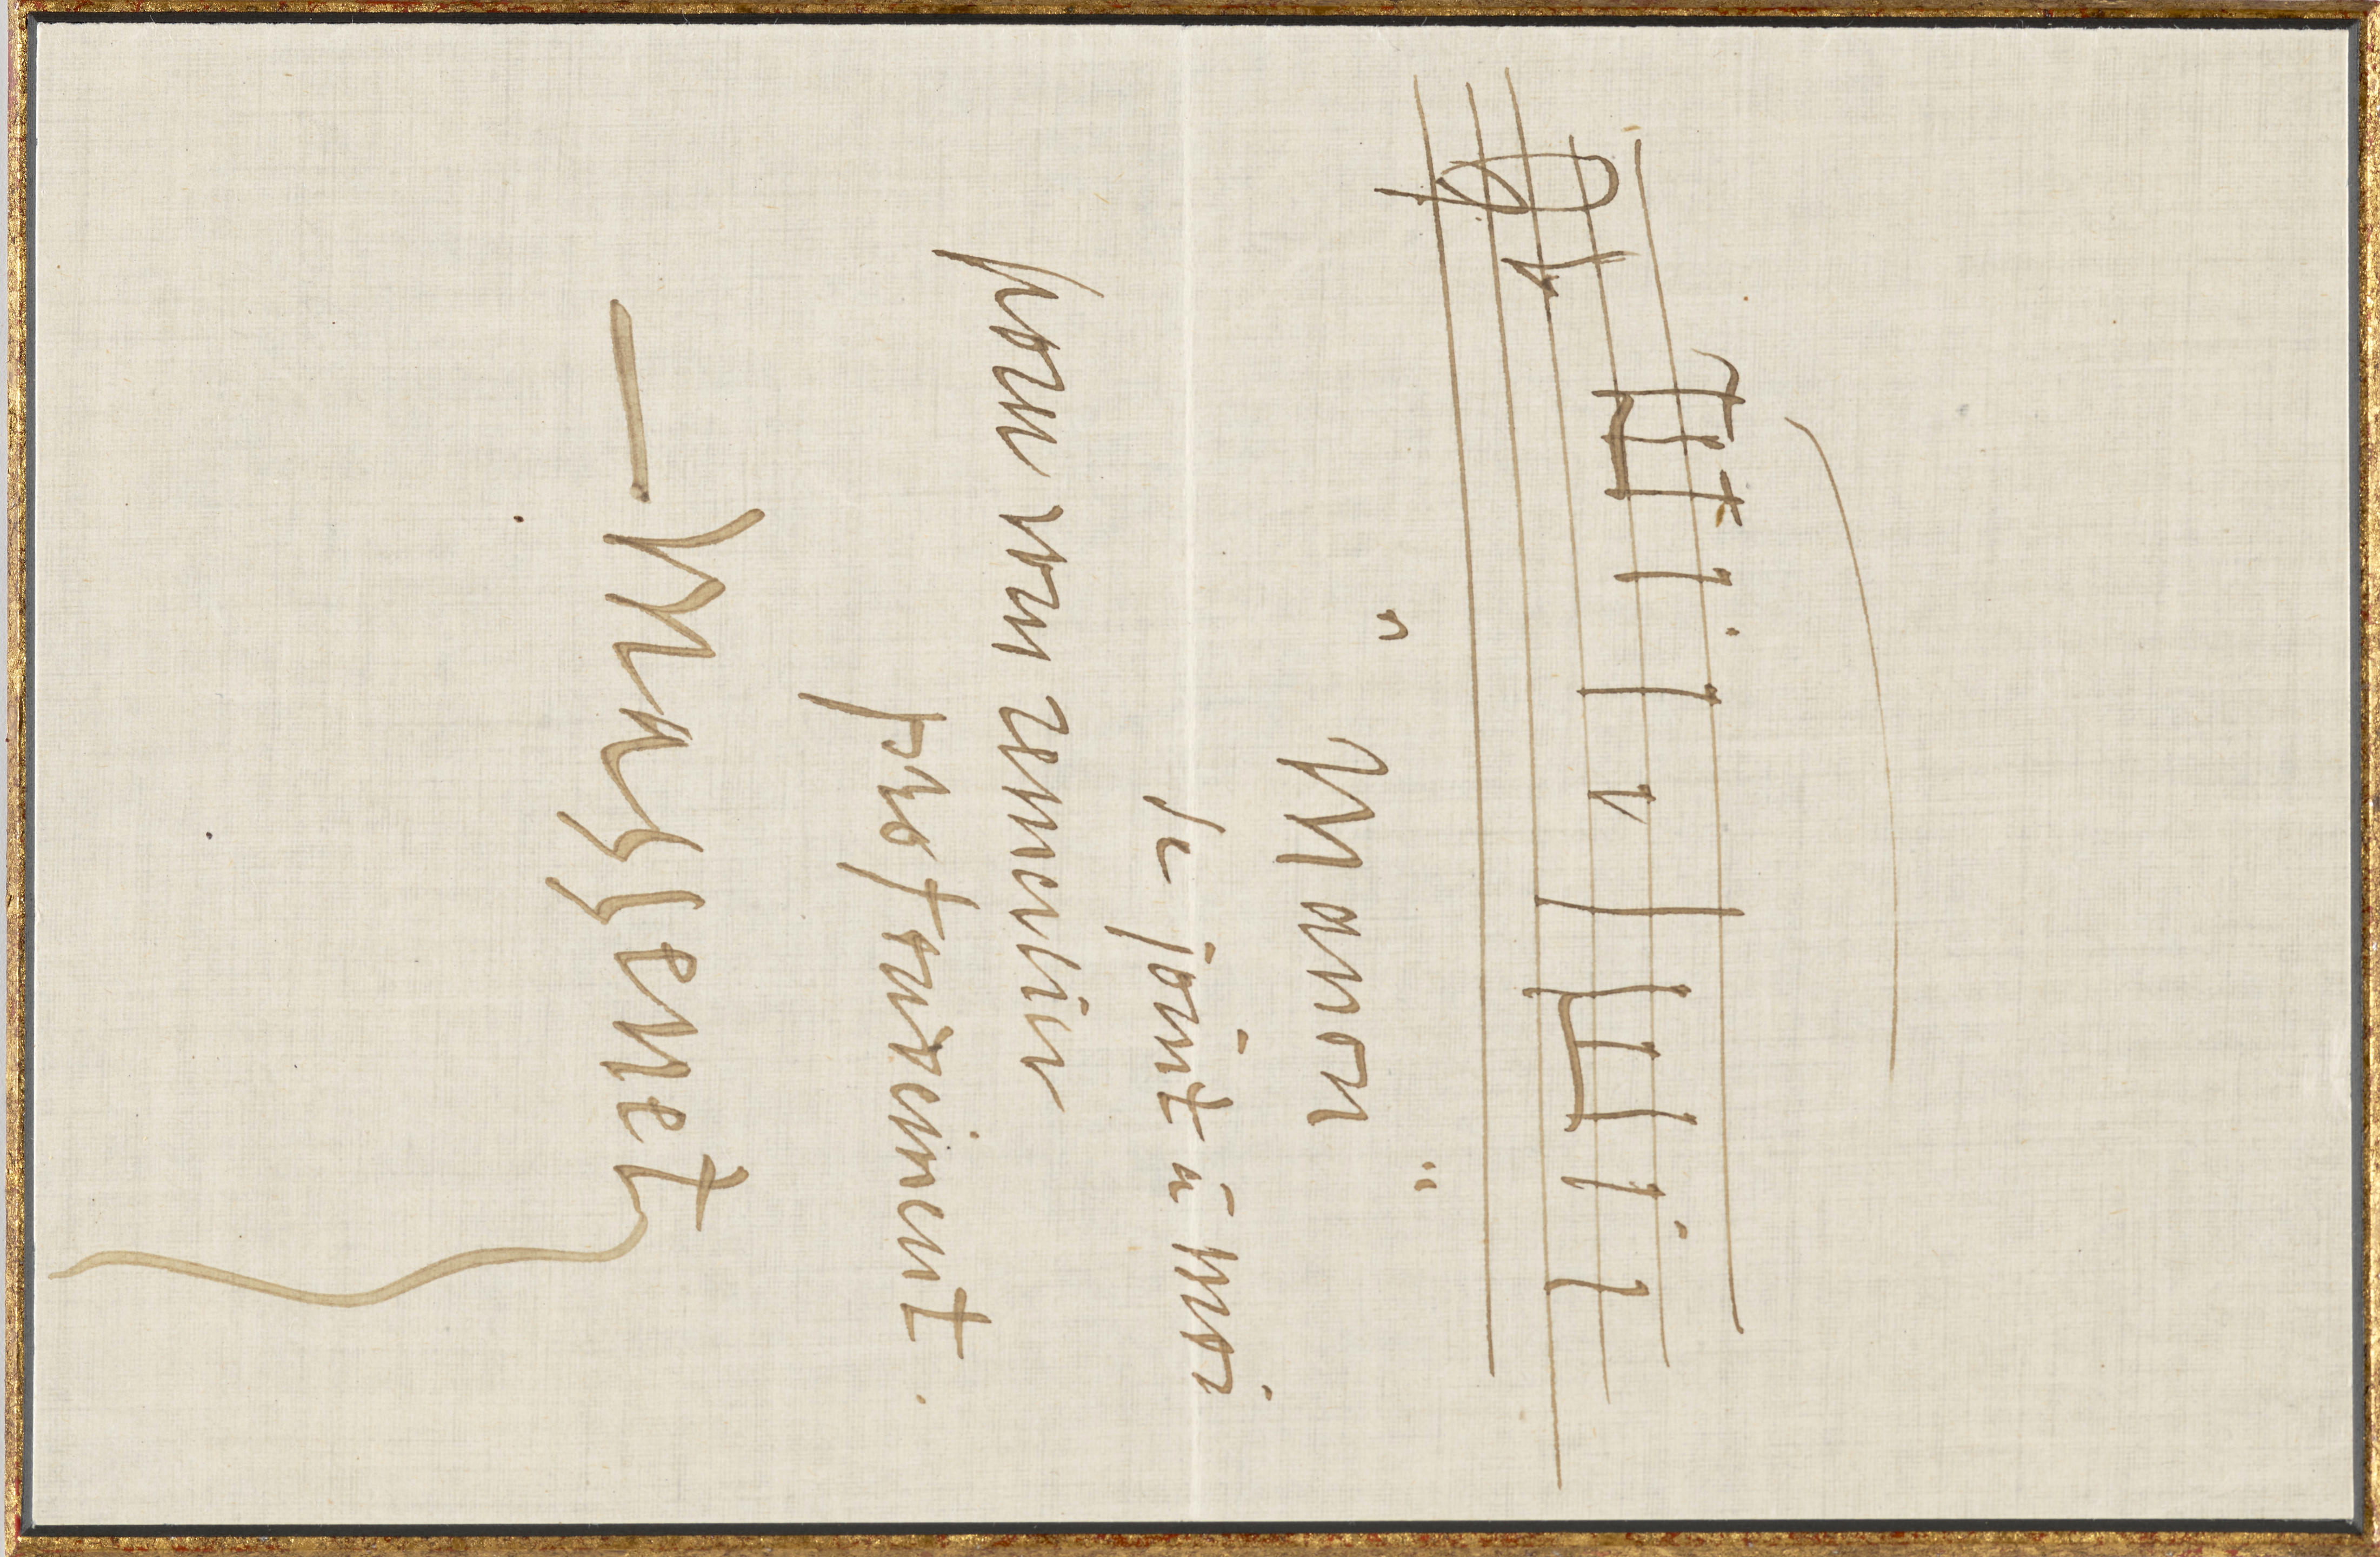 "Manon"
se joint à moi
pour vous remercier
profondément.
Massenet